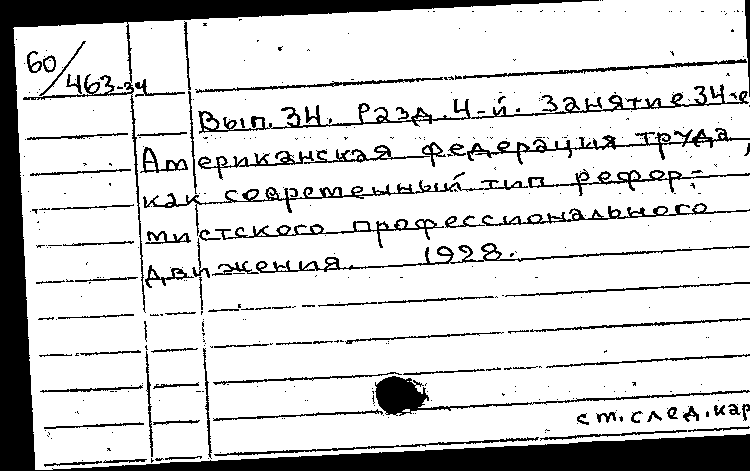 60/463-34
Вып. 34. Разд. 4-й. Занятие 34-е
Американская федерация труда,
как современный тип рефор-
мистского профессионального
движения. 1928.
см. след. кар